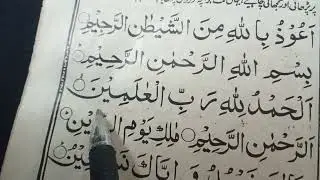 اَعُوْذُ بِاللّٰهِ مِنَ الشَّيْطٰنِ الرَّجِيْمِ
بِسْمِ اللّٰهِ الرَّحْمٰنِ الرَّحِيْمِ
اَلْحَمْدُ لِلّٰهِ رَبِّ الْعٰلَمِيْنَ
الرَّحْمٰنِ الرَّحِيْمِ مٰلِكِ يَوْمِ الدِّيْنِ
وَ اِيَّاكَ نَسْتَعِيْنُ